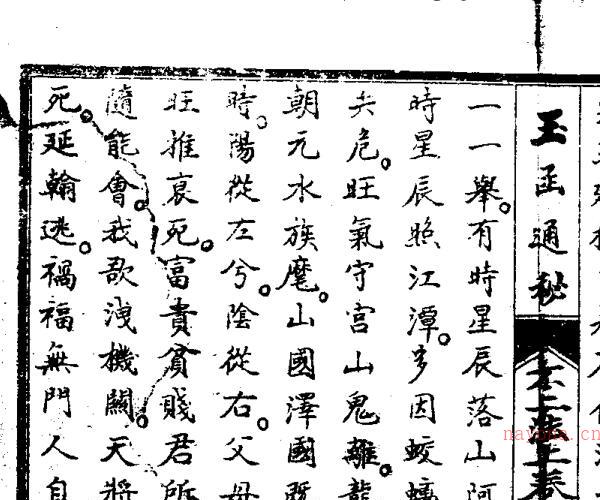 玉函通秘
一一舉。有時星辰落山阿
時星辰照江潭。多因蛟螭
尖危。旺氣守宮山鬼離。龍
朝元水族麾。山國澤國既
時。陽從左兮。陰從右。父母
旺推衰死。富貴貧賤君所
隨能會。我欲洩機關。天將
死。延輪逃。禍福無門人自